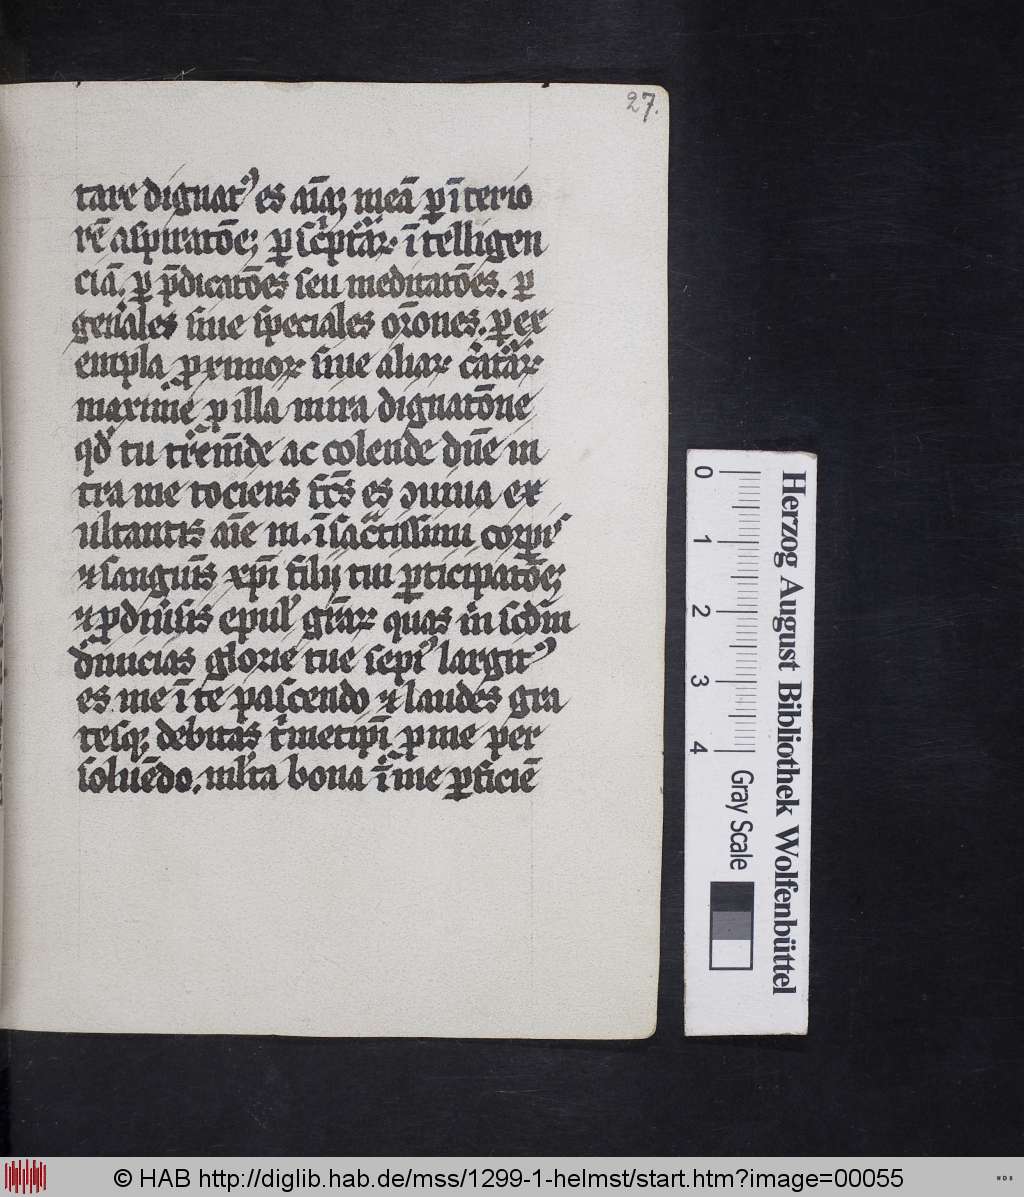 27.
tare dignatꝰ es aīaꝫ meā ꝑ īterio
rē aspiratōeꝫ ꝑ sc̓ptāꝝ · ītelligen
ciā. ꝑ p̄dicatōes seu meditatōes. ꝑ
gen̄ales siue speciales or̄ones. ꝑ ex
empla ꝓximoꝝ siue aliaꝝ c̓atāꝝ
maxime ꝑ illa mira dignatōne
qđ tu tremēde ac colende dn̄e in
tra me tociens fc̄s es ↄuiua ex
ultantis aīe in. īsac̄tissimi corꝑis
⁊ sanguīs xp̄i filij tui ꝑticipatōeꝫ
⁊ ꝓ diuīsis epul̓ gr̄aꝝ quas in scd̄m
diuicias glorie tue sepiꝰ largitꝰ
es me ī te pascendo ⁊ laudes gra
tesqꝫ debitas t̓ metip̄i ꝑ me per
soluēdo, ml̓ta bona ī me ꝑficiē
0 1 2 3 4
Gray Scale
Herzog August Bibliothek Wolfenbüttel
© HAB http://diglib.hab.de/mss/1299-1-helmst/start.htm?image=00055